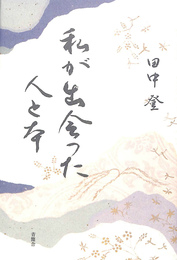 田中登
私が出会った
人と本
青簡舎